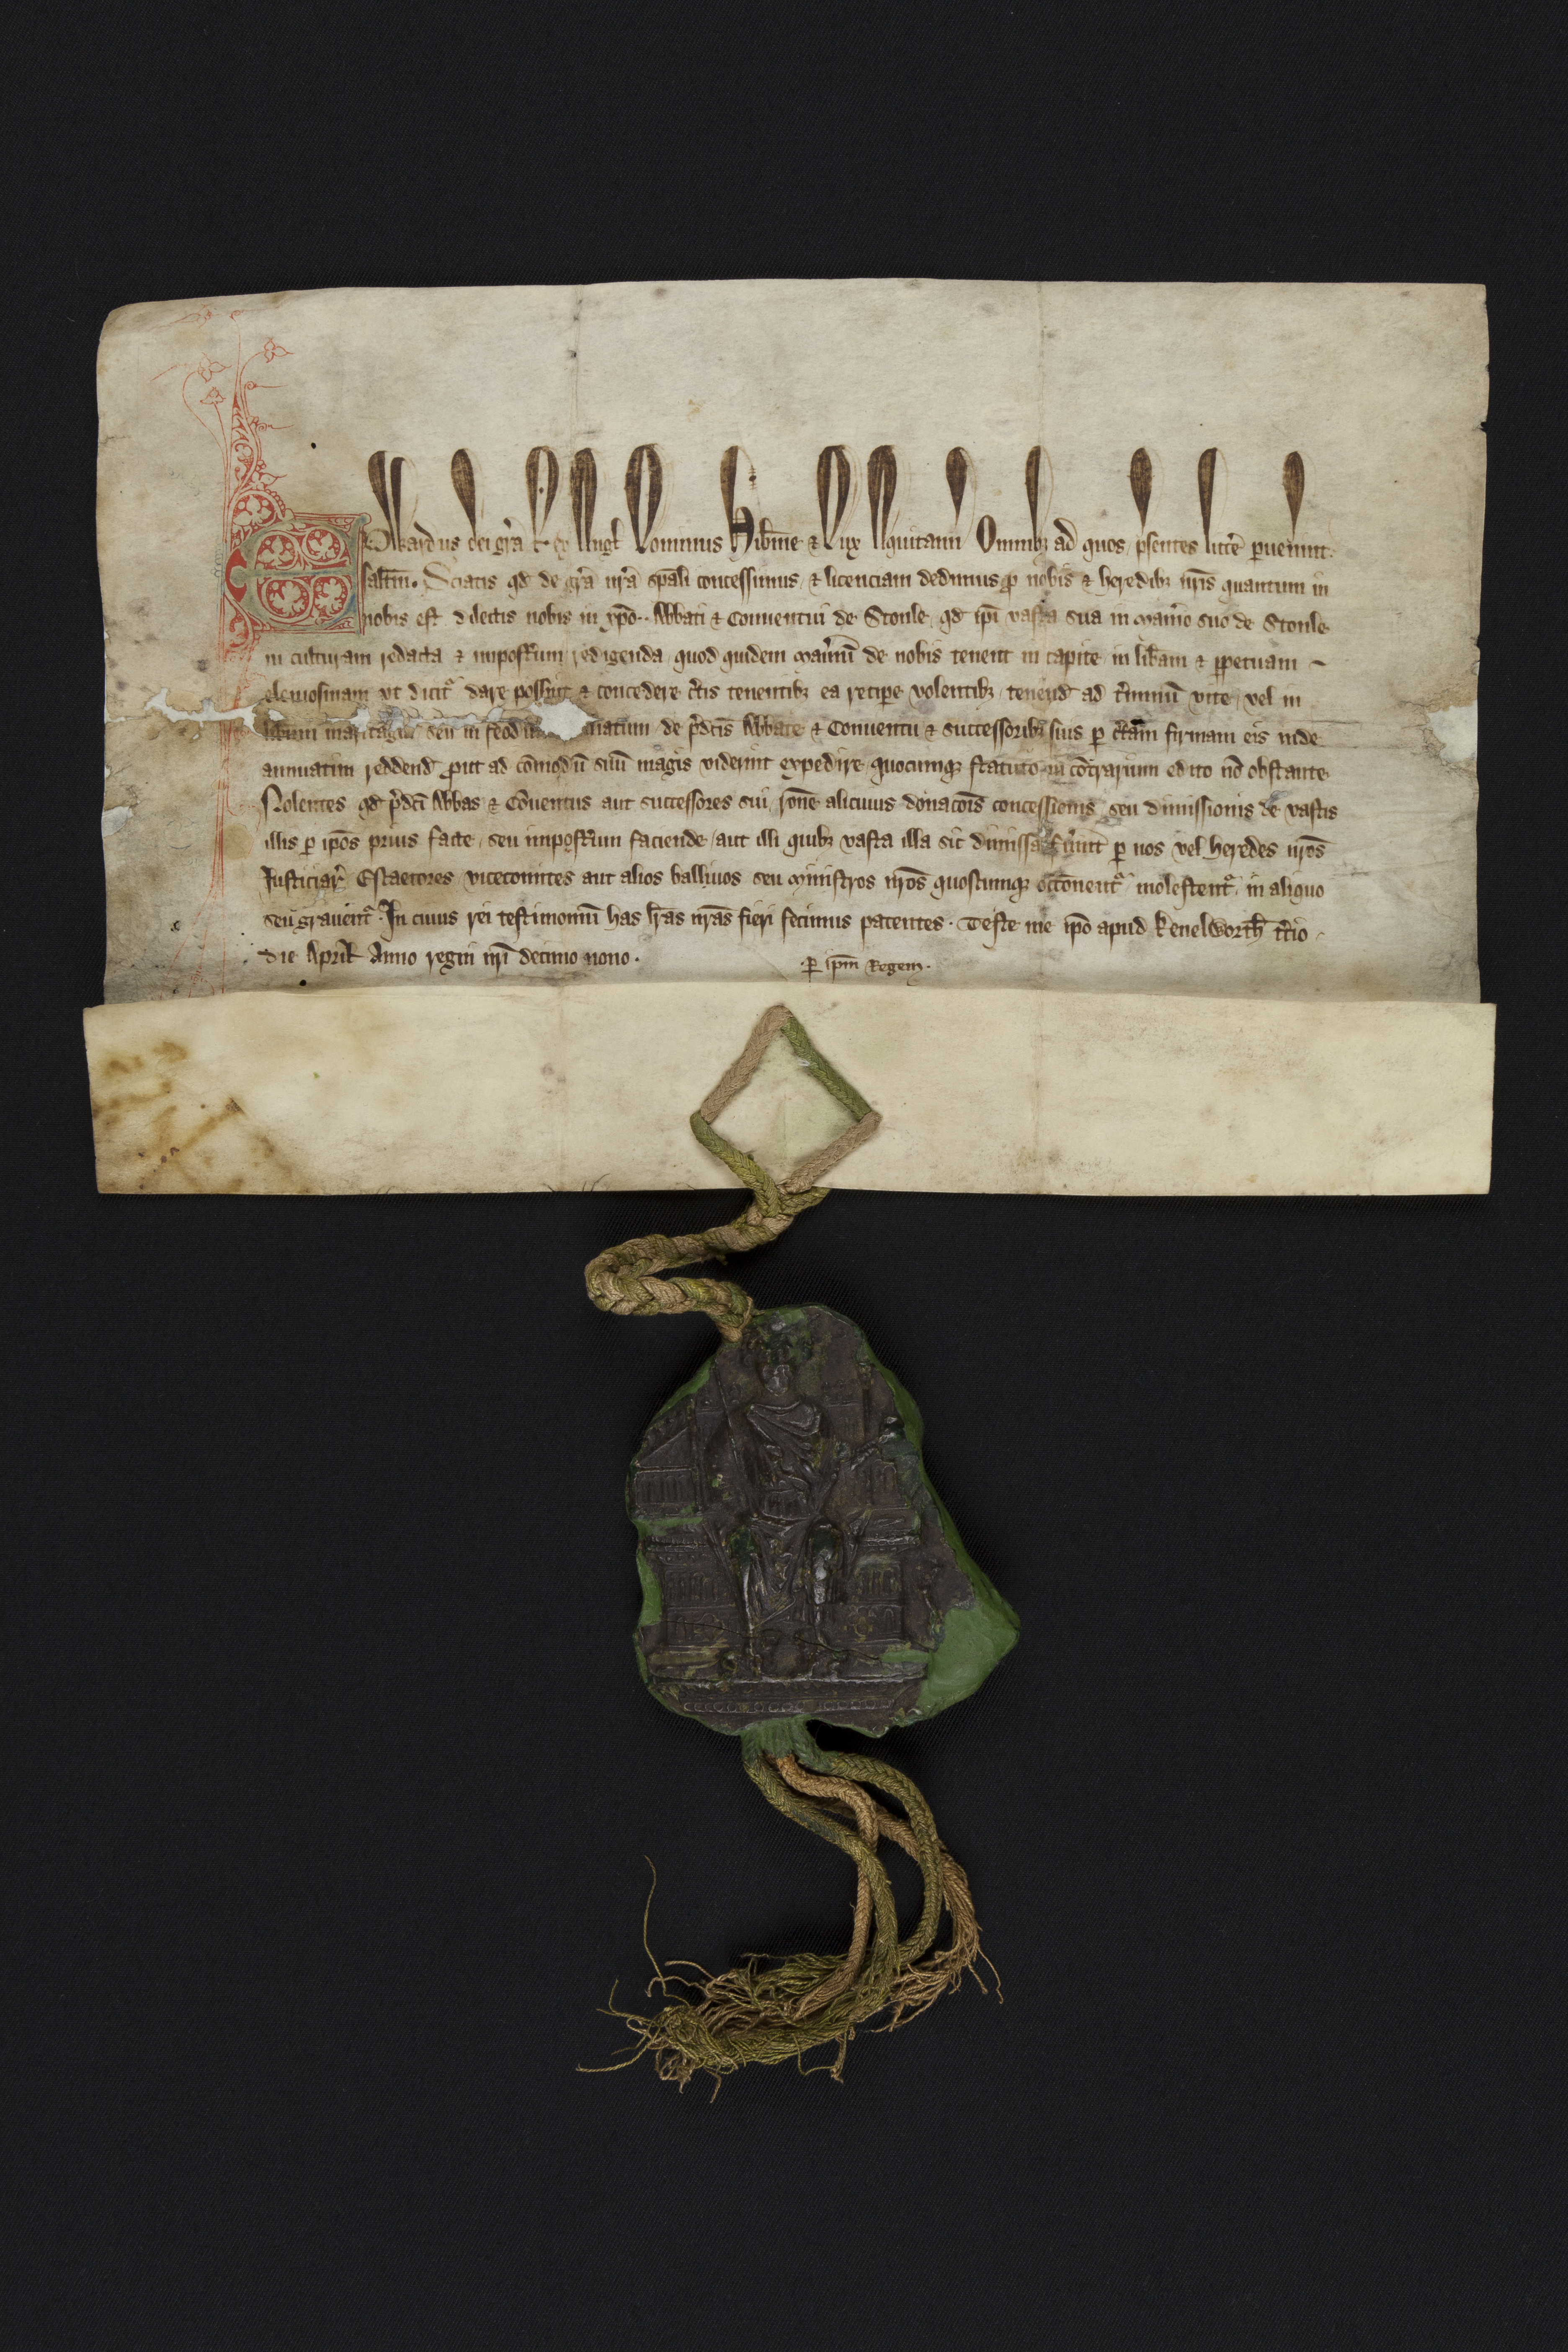 Edwardus dei gr̄a Rex Angl̄ Dominus Hib̄nie & Dux Aquitann Omnibȝ ad quos p̄sentes litr̄e puenint.
salt̄m. Sciatis qd de gr̄a nr̄a sp̄ali concessimus & licenciam dedimus p nobis & heredibȝ nr̄is quantum in
nobis est dilectis nobis in xp̄o Abbati & Conuentui de Stonle qd ip̄i vasta sua in Man̄io suo de Stonle
in culturam redacta & impost̄um redigenda quod quidem Man̄iū de nobis tenent in capite in lib̄am & ppetuam
elemosinam vt dicit̄ dare possint & concedere c̄tis tenentibȝ ea recipe volentibȝ tenend ad t̄minū vite vel in
lib̄um maritagiū seu in feodū de p̄dc̄is Abbate & Conuentu & successoribȝ suis p c̄tam firmam eis inde
annuatim reddend put ad cōmodū suū magis viderint expedire quocumqȝ statuto in cont̄rarium edito nō obstante
Nolentes qd p̄dc̄i Abbas & Cōuentus aut successores sui rōne alicuius donacōis concessionis seu dimissionis de vastis
illis p ip̄os prius facte seu impost̄um faciende aut illi quibȝ vasta illa sic dimissa fuint p nos vel heredes nr̄os
Justiciar̄ Escaetores vicecomites aut alios balliuos seu Ministros nr̄os quoscumqȝ occōnent̄ molestent̄ in aliquo
seu grauent̄. In cuius rei testimoniū has lr̄as nr̄as fieri fecimus patentes. Teste me ip̄o apud Kenelworth t̄cio
die April Anno regni nr̄i decimo nono.
p ip̄m Regem.